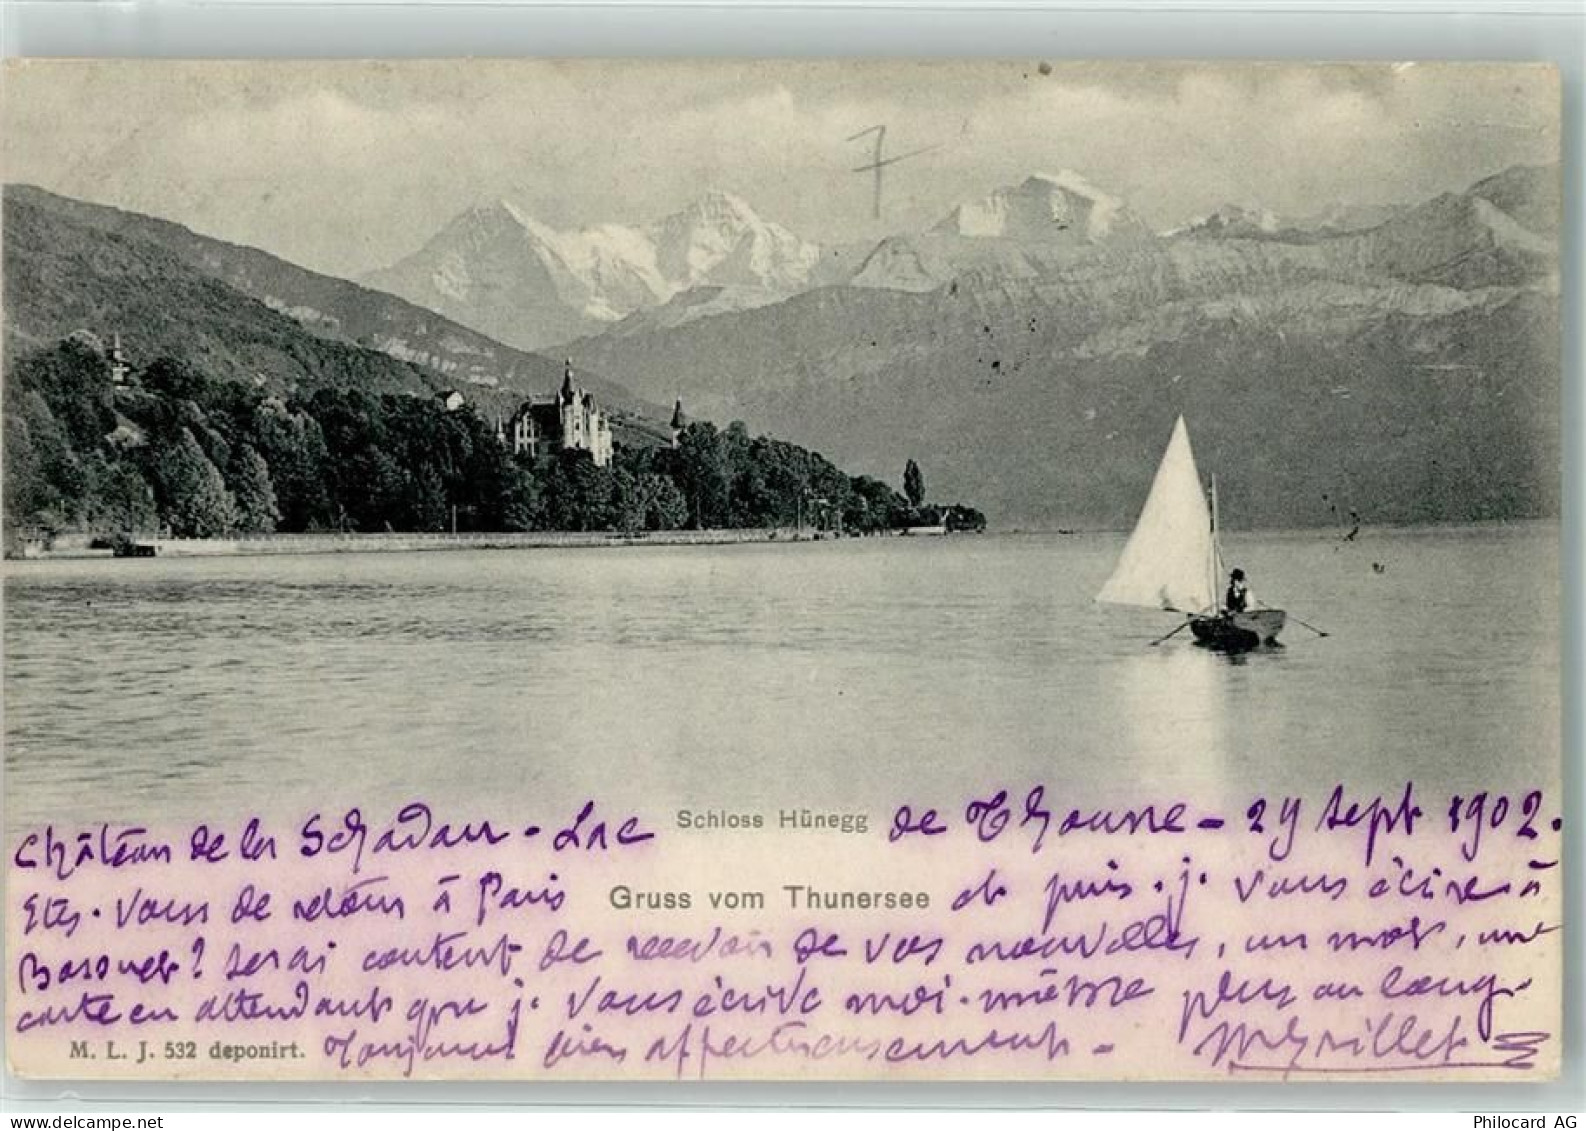 7
Château de la Schadau - Lac Schloss Hünegg de Thoune - 29 Sept 1902.
Etes-vous de retour à Paris Gruss vom Thunersee et puis-je vous écrire à
? Serai content de recevoir de vos nouvelles, un mot, une
carte en attendant que je vous écrive moi-même plus au long.
M. L. J. 532 deponirt. Toujours bien affectueusement -
delcampe.net
Philocard AG